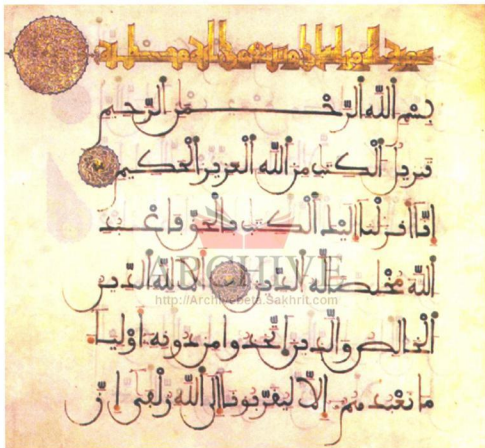 بِسْمِ اللَّهِ الرَّحْمَٰنِ الرَّحِيمِ
تنزيل الكتب من الله العزيز الحكيم
انا انزلنا اليك الكتب بالحق فاعبد
الله مخلصا له الدين الا لله الدين
الخالص والذين اتخذوا من دونه اوليا
ما نعبدهم الا ليقربونا الى الله زلفى ان
ARCHIVE
http://Archivebeta.Sakhrit.com